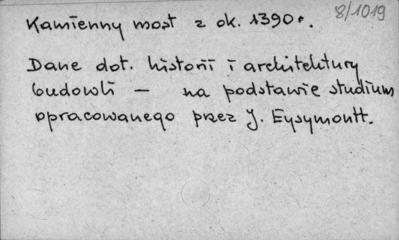 Kamienny most z ok. 1390 r. 8/1019
Dane dot. historii i architektury
budowli — na podstawie studium
opracowanego przez J. Eysymontt.